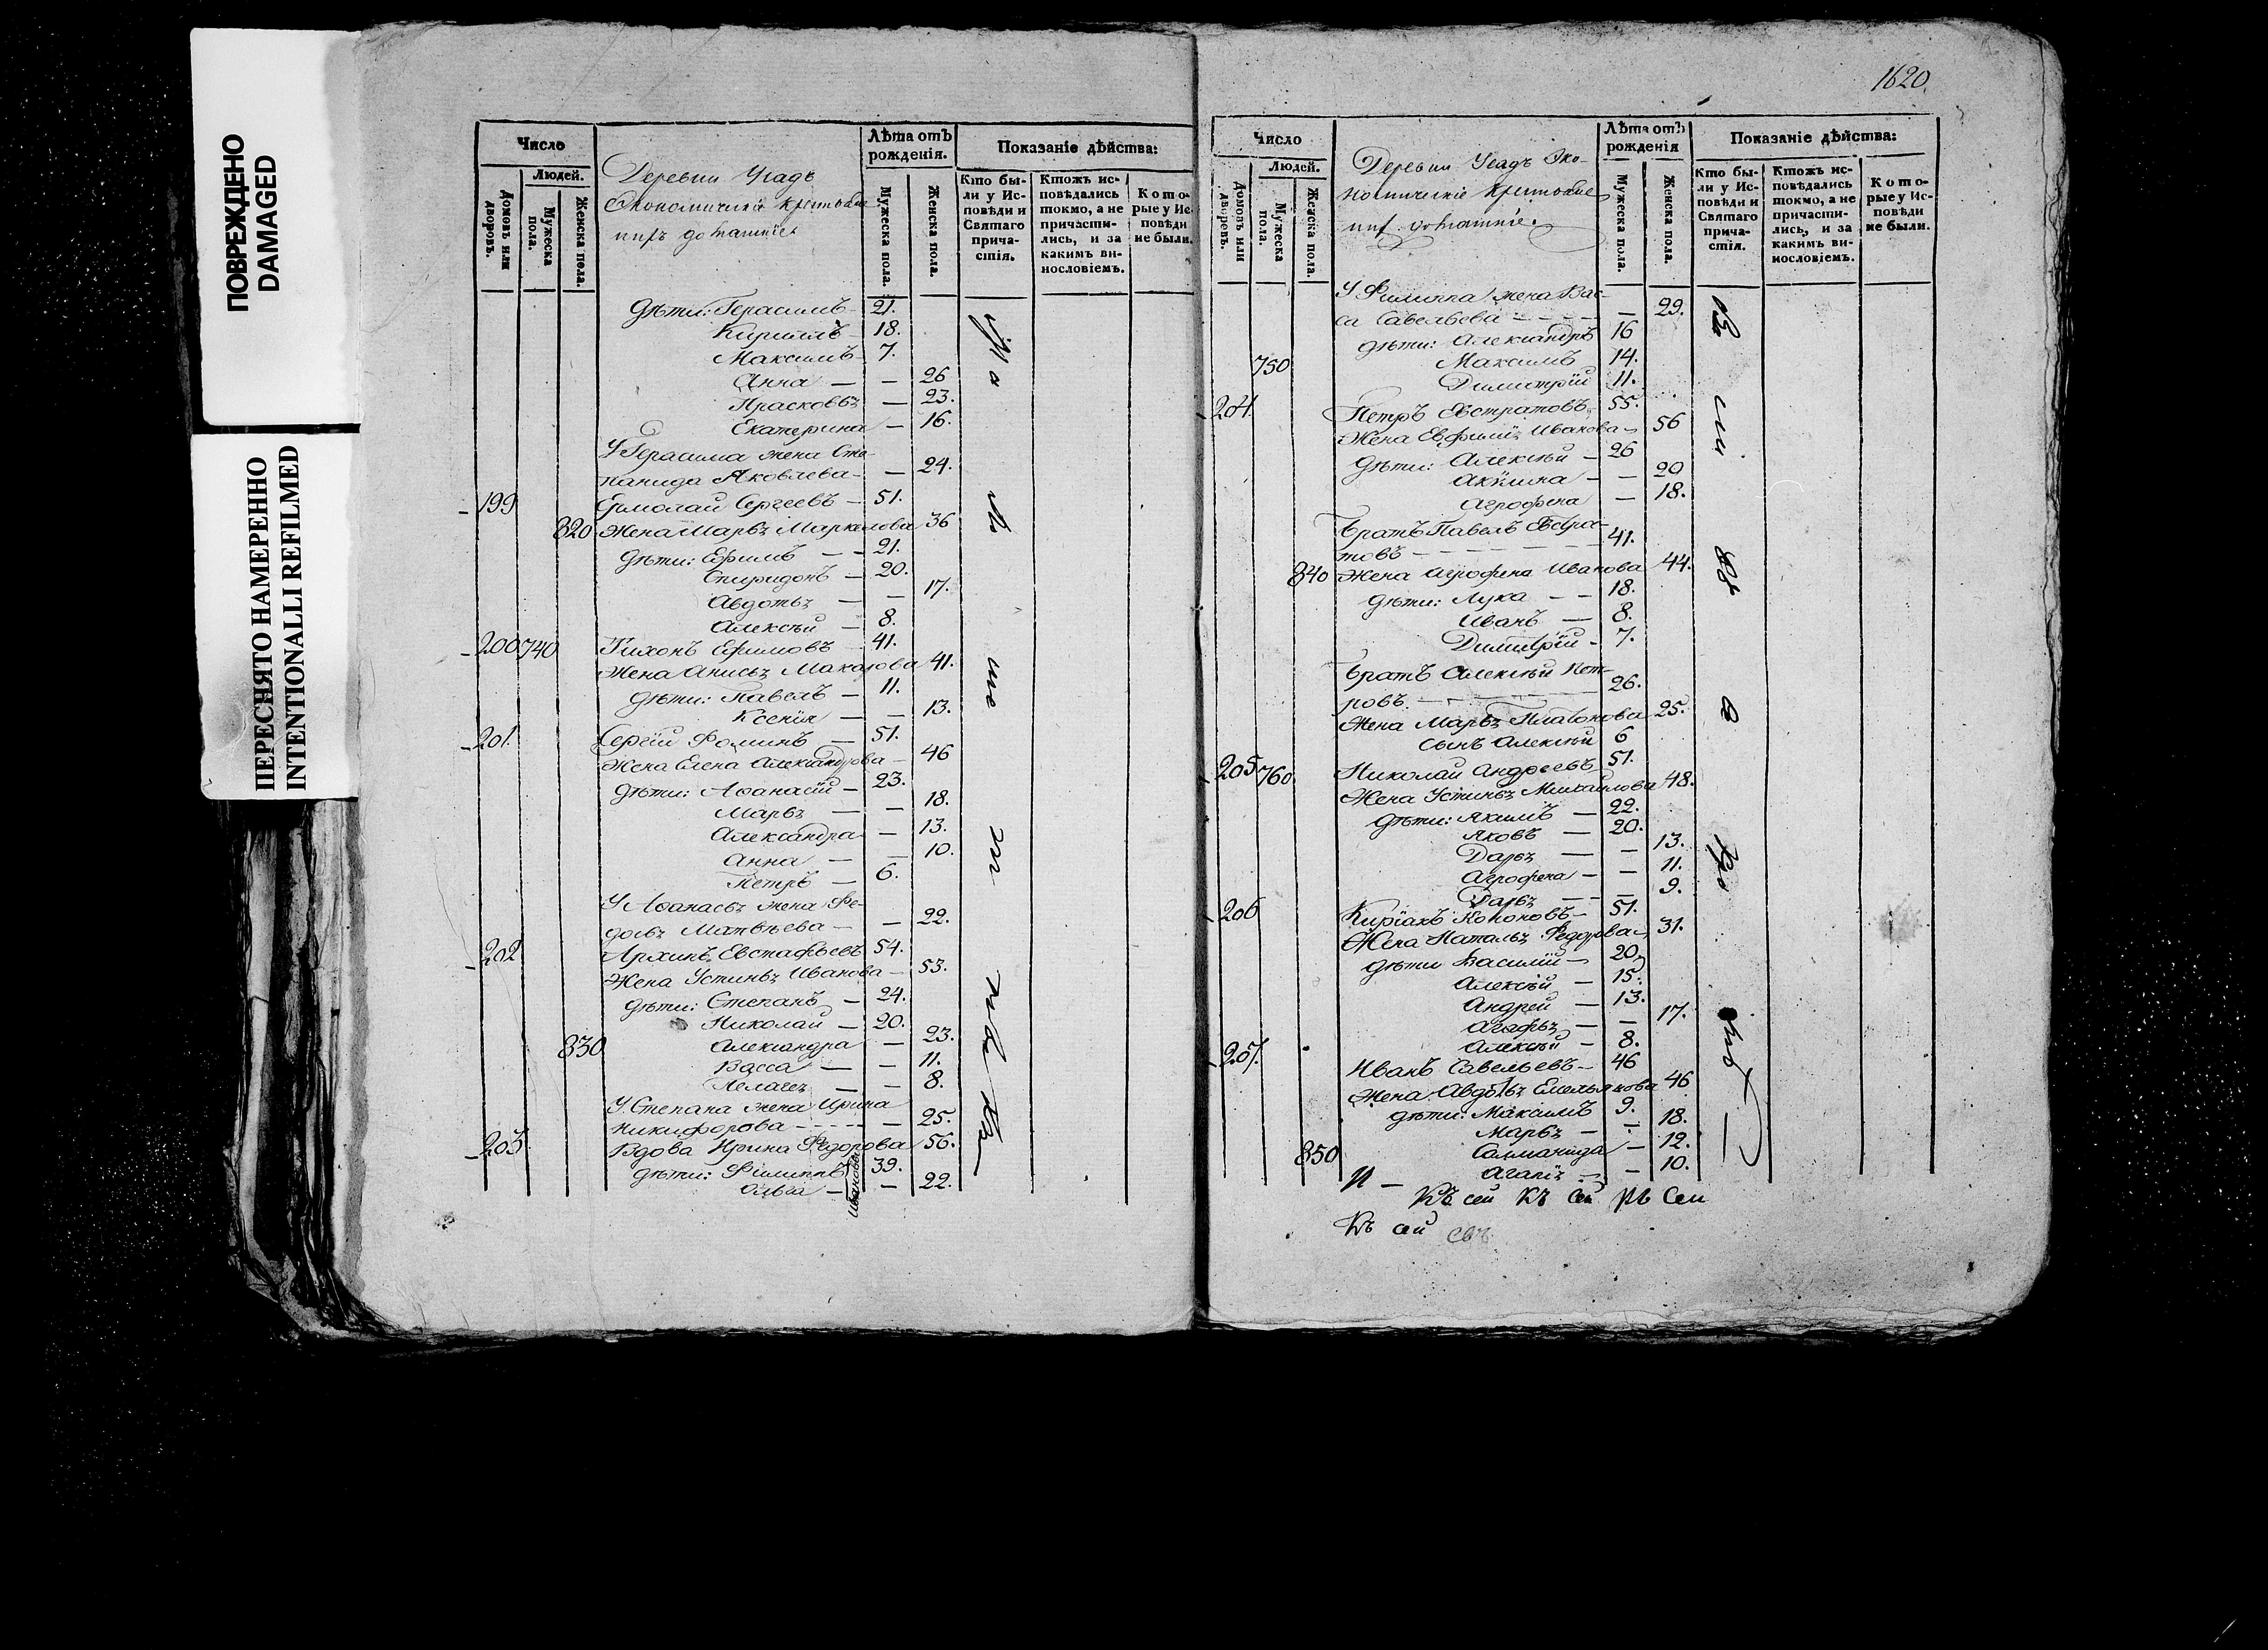 ПОВРЕЖДЕНО
DAMAGED
ПЕРЕСНЯТО НАМЕРЕННО
INTENTIONALLI REFILMED
Число
Людей.
Домовъ или дворовъ.
Мужеска пола.
Женска пола.
Лѣта отъ рожденія.
Мужеска пола.
Женска пола.
Показаніе дѣйства:
Кто бы-
ли у Ис-
повѣди и
Святаго
прича-
стія.
Ктожъ ис-
повѣдались
токмо, а не
причасти-
лись, и за
какимъ ви-
нословіемъ.
Кото-
рые у Ис-
повѣди
не были.
Деревни Усадъ
Экономическіе крестьяне
дѣти: Герасимъ 21.
Кириллъ 18.
Максимъ 7.
Анна — — 26
Прасковьѧ — 23.
Екатерина — 16.
У Герасима жена Сте-
панида Яковлева — — 24.
199 Ермолай Сергеевъ — 51.
820 Жена Марьѧ Маркелова 36
дѣти: Ефимъ — — 21.
Спиридонъ — 20.
Авдотьѧ — — 17.
Алексѣй — 8.
200 740 Тихонъ Ефимовъ — 41.
Жена Анисьѧ Макарова 41.
дѣти: Павелъ — 11.
Ксенія — — 13.
201. Сергій Фоминъ — 51.
Жена Елена Александрова — 46
дѣти: Аѳанасій — 23.
Марьѧ — — 18.
Александра — 13.
Анна — — 10.
Петръ — 6.
У Аѳанасьѧ жена Ѳе-
досьѧ Матвѣева — — 22.
202 Архипъ Евстафьевъ 54.
Жена Устиньѧ Иванова — 53.
дѣти: Степанъ — 24.
Николай — 20.
830 Александра — 23.
Васса — — 11.
Пелагеѧ — — 8.
У Степана жена Ирина
Никифорова — — 25.
203 Вдова Ирина Ѳедорова 56.
дѣти: Филиппъ 39.
Ивановы
Ольга — — 22.
1620.
Число
Людей.
Домовъ или дворовъ.
Мужеска пола.
Женска пола.
Лѣта отъ рожденія
Мужеска пола.
Женска пола.
Показаніе дѣйства:
Кто бы-
ли у Ис-
повѣди и
Святаго
прича-
стія.
Ктожъ ис-
повѣдались
токмо, а не
причасти-
лись, и за
какимъ ви-
нословіемъ.
Кото-
рые у Ис-
повѣди
не были.
Деревни Усадъ Эко-
номическіе крестьяне
У Филиппа жена Вас-
са Савельева — — 29.
дѣти: Александръ 16
750 Максимъ 14.
Димитрій 11.
204 Петръ Евстратовъ 55.
Жена Евфиміѧ Иванова — 56
дѣти: Алексѣй — 26
Акилина — — 20
Агрофена — 18.
Братъ Павелъ Евстра-
товъ — 41.
840 Жена Агрофена Иванова 44.
дѣти: Лука — — 18.
Иванъ — 8.
Димитрій — 7.
Братъ Алексѣй Пет-
ровъ. — 26.
Жена Марьѧ Платонова 25.
сынъ Алексѣй 6
205 760 Николай Андреевъ 51.
Жена Устиньѧ Михайлова 48.
дѣти: Якимъ — 22.
Яковъ — 20.
Дарьѧ — — 13.
Агрофена — — 11.
Дарьѧ — — 9.
206 Киріакъ Кононовъ — 51.
Жена Натальѧ Ѳедорова 31.
дѣти Василій — 20
Алексѣй — 15.
Андрей — 13.
Агафьѧ — — 17.
Алексѣй — 8.
207. Иванъ Савельевъ — 46
Жена Авдотьѧ Емельянова 46
дѣти: Максимъ 9.
Марьѧ — — 18.
850 Саломанида — 12.
Агапіѧ — — 10.
Къ сей Къ сей Къ Сей
Къ сей